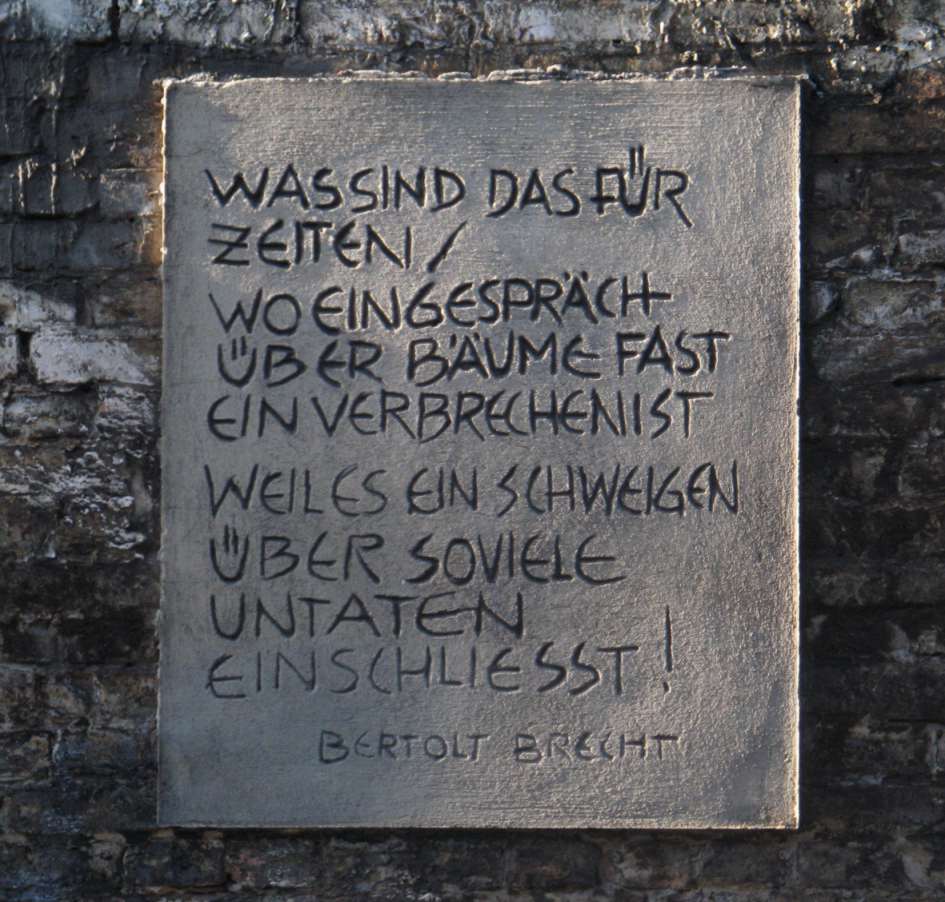 WAS SIND DAS FÜR
ZEITEN/
WO EIN GESPRÄCH
ÜBER BÄUME FAST
EIN VERBRECHEN IST
WEIL ES EIN SCHWEIGEN
ÜBER SOVIELE
UNTATEN
EINSCHLIESST!
BERTOLT BRECHT